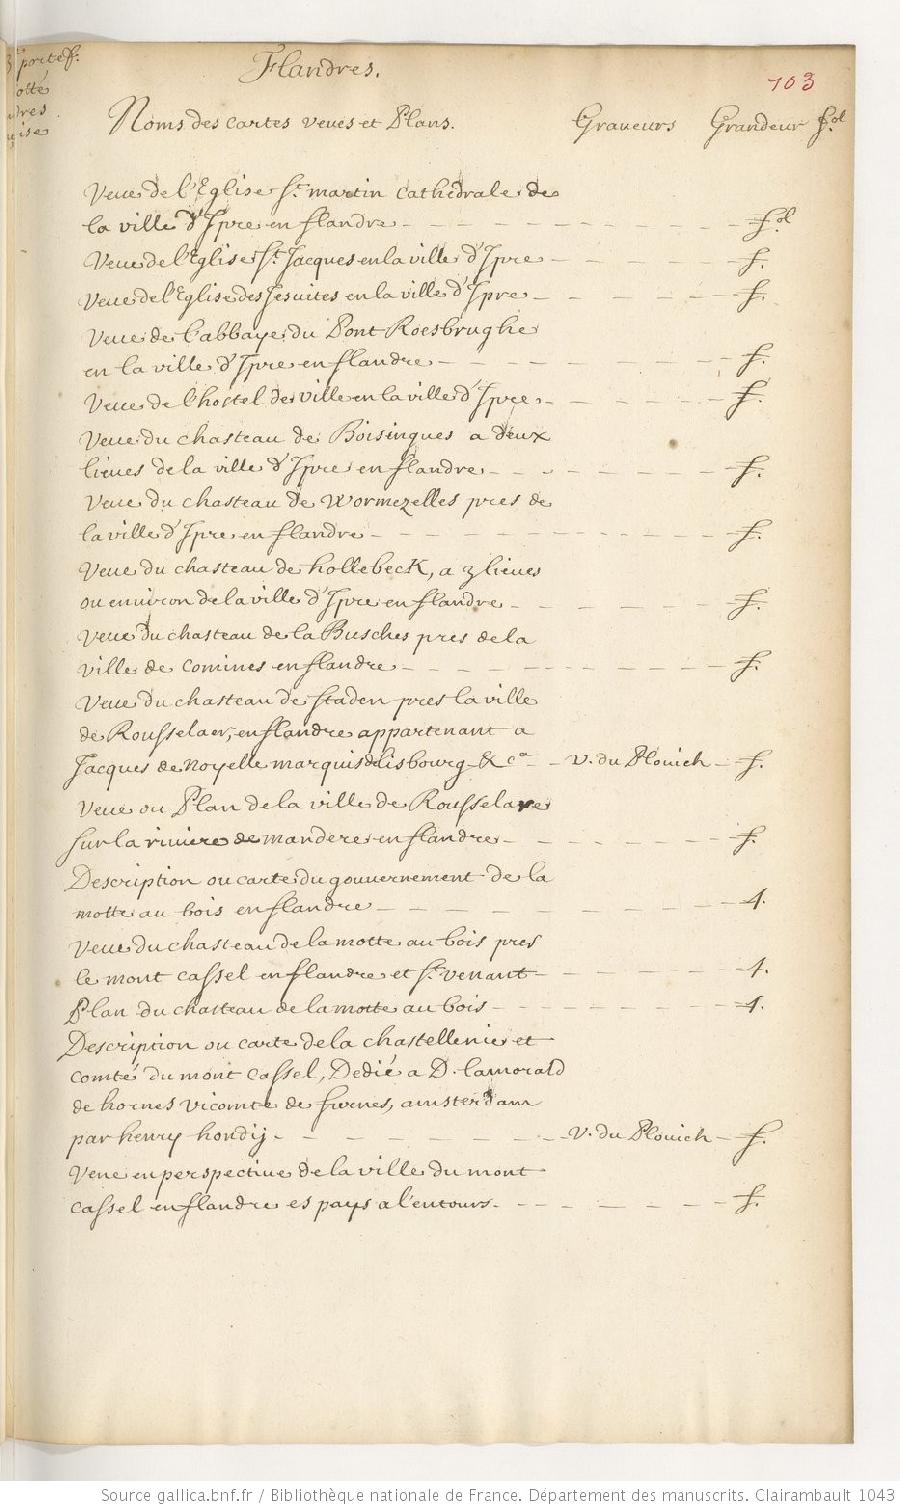 3e portef.
otté
dres
çise
Flandres.
103
Noms des cartes veues et Plans. Graveurs Grandeur fol
Veue de l'Eglise St martin cathedrale de
la ville d'Ipre en flandre - - - - - - - - - fol
Veue de l'Eglise St Jacques en la ville d'Ipre - - - - - f.
Veue de l'Eglise des Jesuites en la ville d'Ipre - - - - - f.
Veue de l'abbaye du Pont Roesbrughe
en la ville d'Ipre en flandre - - - - - - - - f.
Veue de l'hostel de ville en la ville d'Ipre - - - - - f.
Veue du chasteau de Boisingues a deux
lieues de la ville d'Ipre en flandre - - - - - - - f.
Veue du chasteau de Wormezelles pres de
la ville d'Ipre en flandre - - - - - - - - - f.
Veue du chasteau de hollebeck, a 3 lieues
ou environ de la ville d'Ipre en flandre - - - - - - f.
Veue du chasteau de la Busches pres de la
ville de comines en flandre - - - - - - - - f.
Veue du chasteau de staden pres la ville
de Rousselaer, en flandre appartenant a
Jacques de noyelle marquis de lisbourg &ca - v. du Plouich - f.
Veue ou Plan de la ville de Rousselare
sur la riviere de mandere en flandre - - - - - - f.
Description ou carte du gouvernement de la
motte au bois en flandre - - - - - - - - - 4.
Veue du chasteau de la motte au bois pres
le mont cassel en flandre et St venant - - - - - 4.
Plan du chasteau de la motte au bois - - - - - - - 4.
Description ou carte de la chastellenie et
comté du mont cassel, Dedié a D. lamorald
de hornes vicomte de furnes, amsterdam
par henry hondij - - - - - - - - v. du Plouich - f.
Veue en perspective de la ville du mont
cassel en flandre es pays a l'entours - - - - - - f.
Source gallica.bnf.fr / Bibliothèque nationale de France. Département des manuscrits. Clairambault 1043